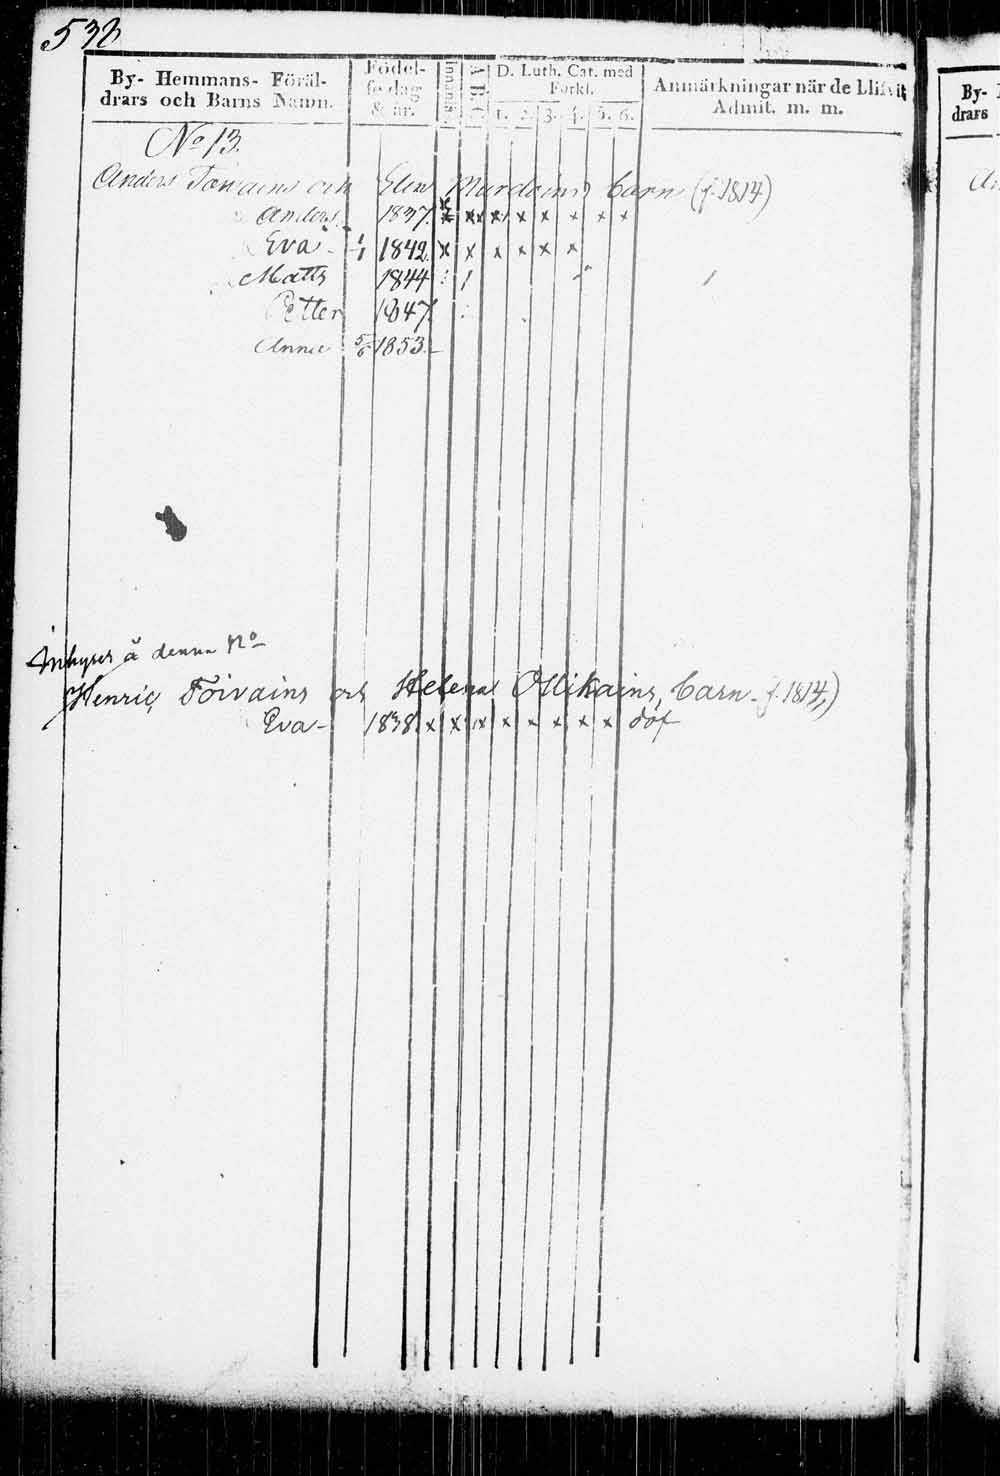 538
By- Hemmans- Föräl-
drars och Barns Namn.
Födel-
sedag
& år.
Innanl.
A. B. C.
D. Luth. Cat. med
Förkl.
1. 2. 3. 4. 5. 6.
Anmärkningar när de blifvit
Admit. m. m.
No 13.
Anders Toivains och Elin barn (f. 1814)
Anders. 1837. x x x x x x x x
Eva - 1842. x x x x x x
Matts 1844
Petter 1847.
Anna 5/6 1853.
Inhyses å denna No
Henric Toivains och Helena Ollikains, barn (f. 1814,)
Eva - 1838 x x x x x x x x döf
By-
drars